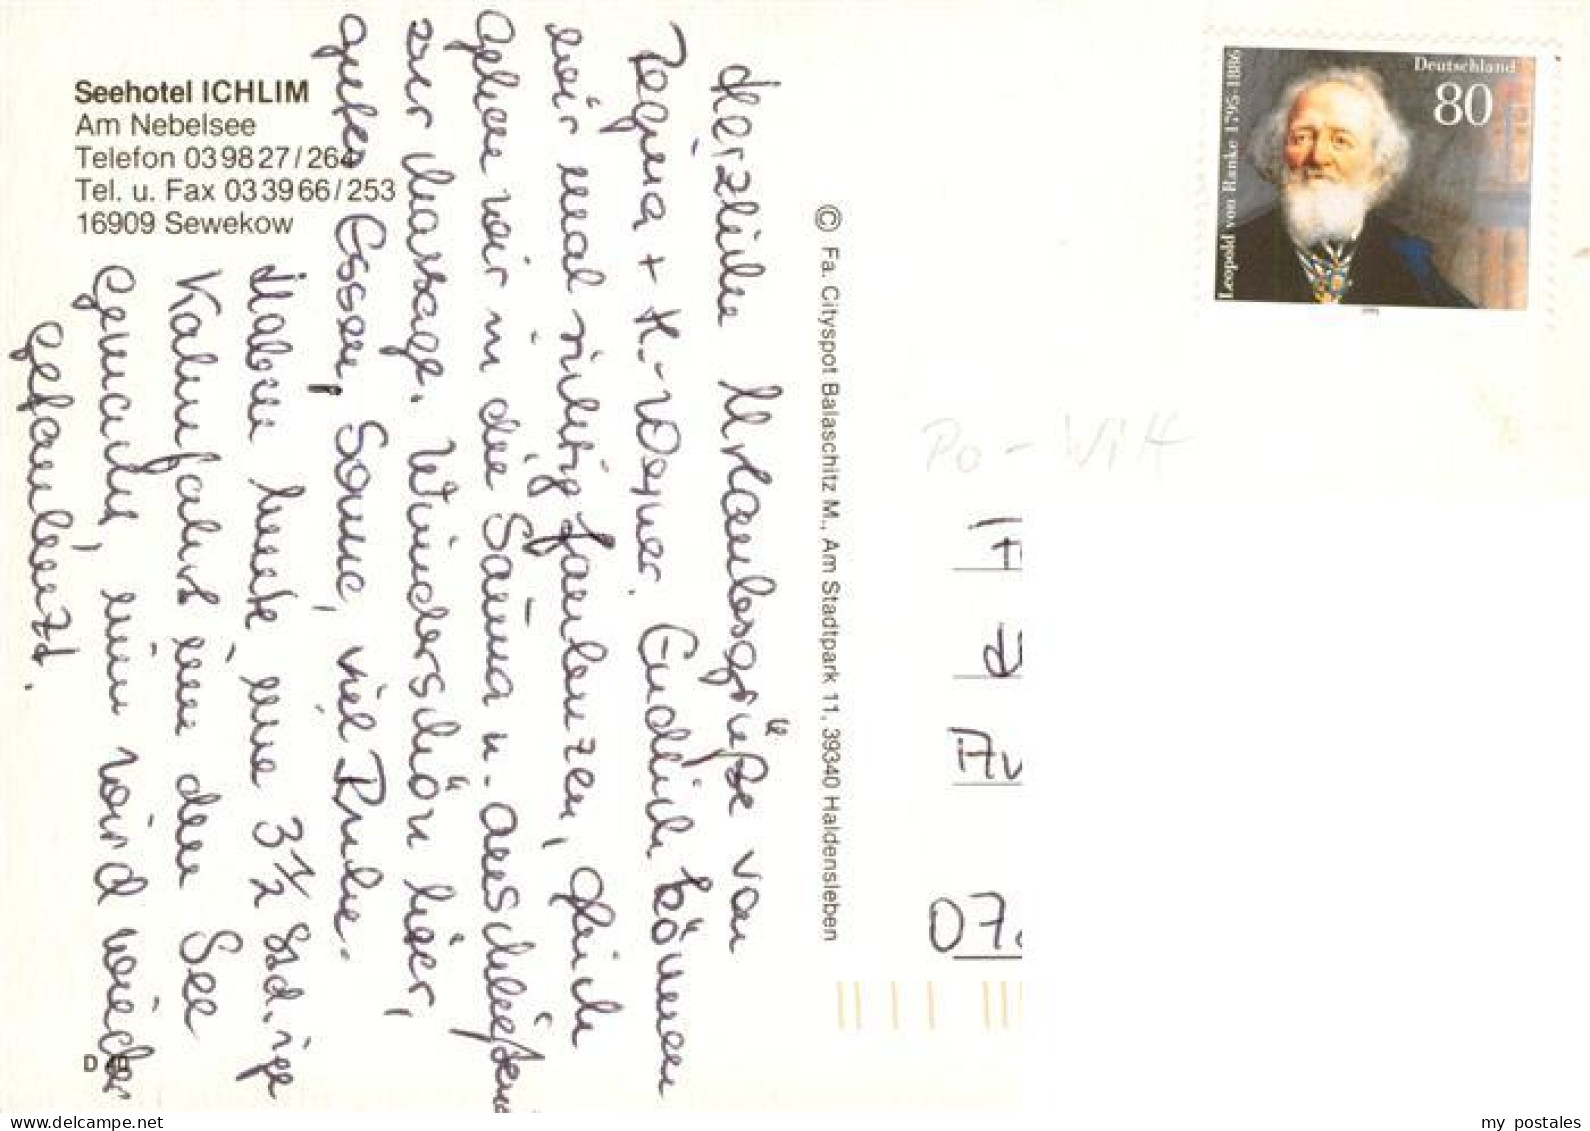 Seehotel ICHLIM
Am Nebelsee
Telefon 039827/264
Tel. u. Fax 033966/253
16909 Sewekow
Herzliche Urlaubsgrüße von
Regina + K.-Werner. Endlich können
wir mal richtig faulenzen, gleich
gehen wir in die Sauna u. anschließend
zur Massage. Wunderschön hier,
gutes Essen, Sonne, viel Ruhe.
Haben heute eine 3 1/2 Std.ige
Kahnfahrt über den See
gemacht, nun wird wieder
gefaulenzt.
D
© Fa. Cityspot Balaschitz M., Am Stadtpark 11, 39340 Haldensleben
Deutschland
80
Leopold von Ranke 1795-1886
Po - Witt
07.
www.delcampe.net
my_postales